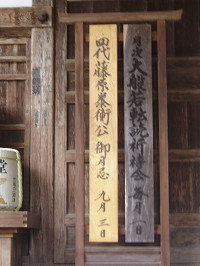 月並大般若転読祈祷会 毎月一日
四代藤原泰衡公 御月忌 九月三日
堂